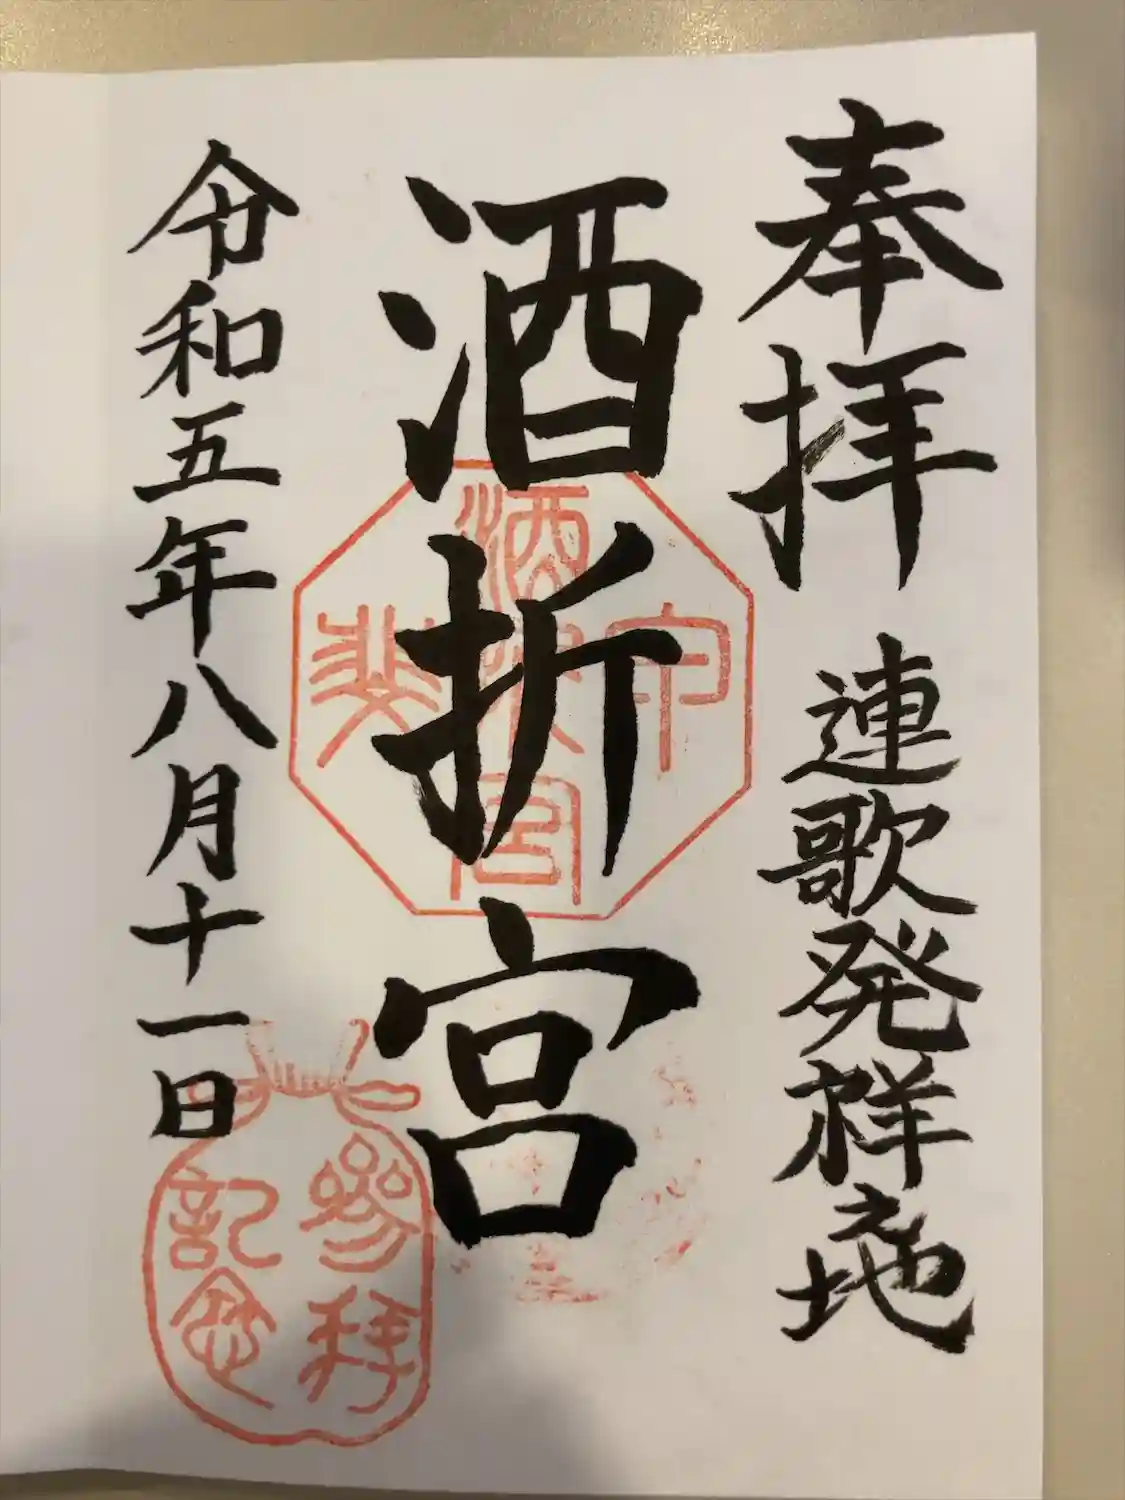 奉拝 連歌発祥之地
酒折宮
令和五年八月十一日
甲斐
酒折宮
參拜
記念